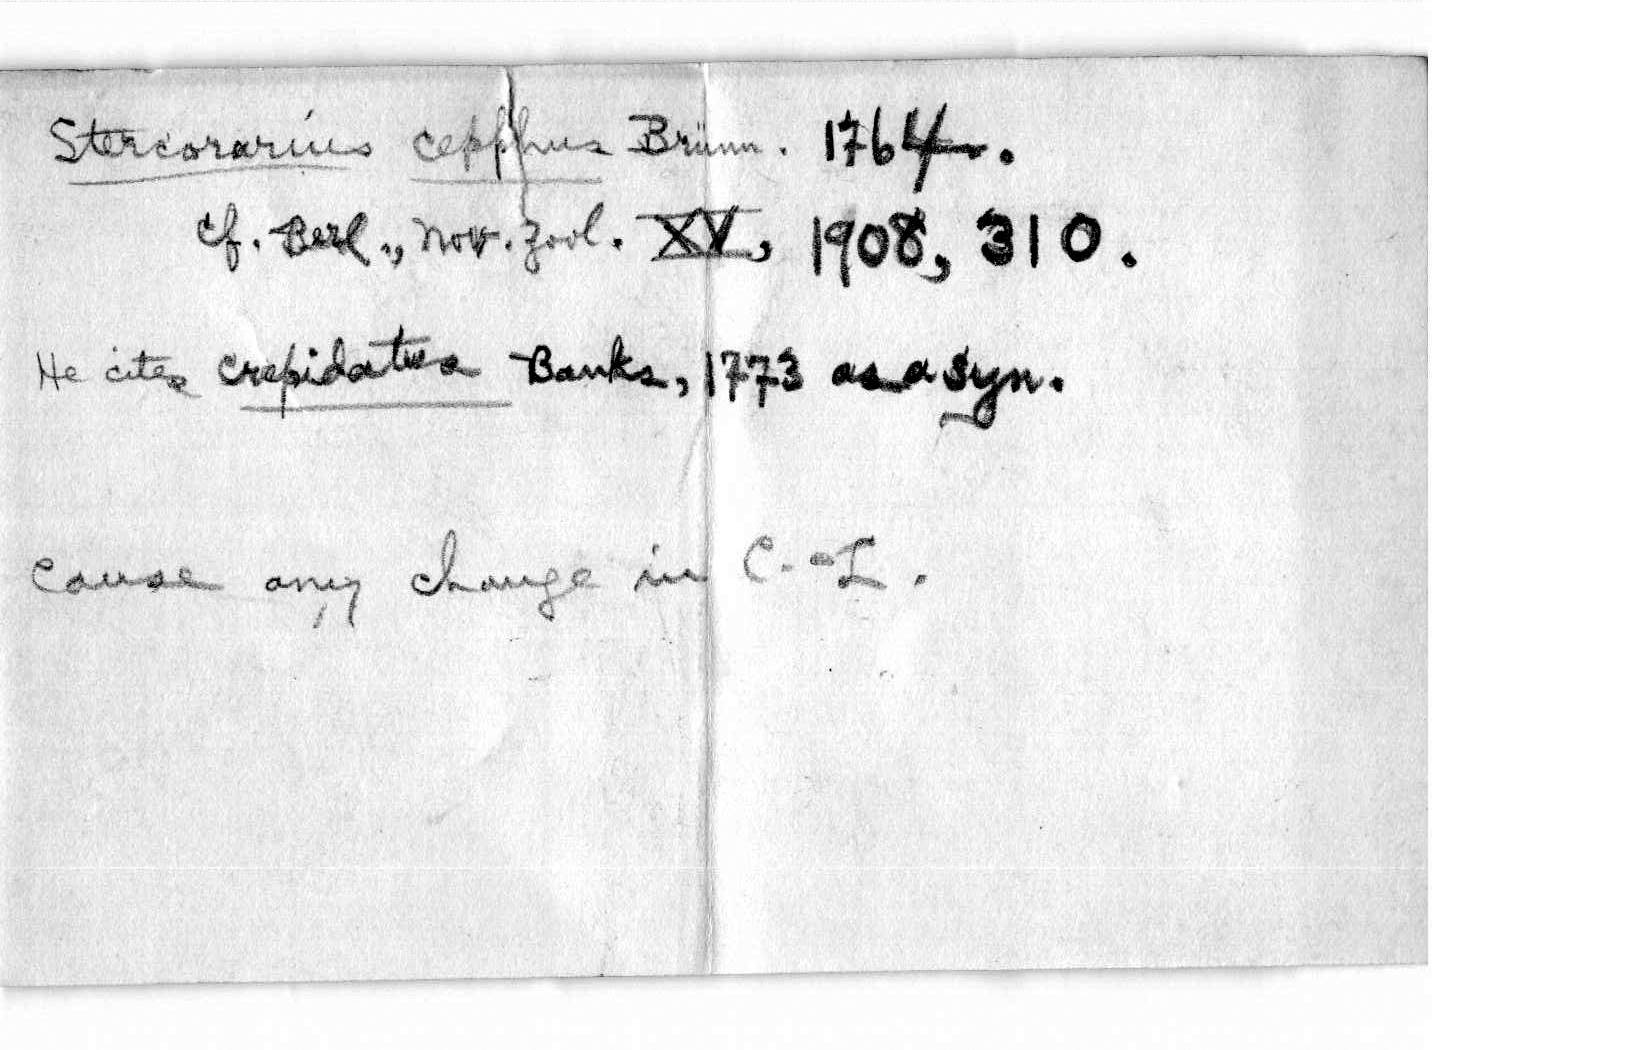 Stercorarius cepphus Brünn. 1764.
cf. Berl., Nov. Zool. XV, 1908, 310.
He cites crepidatus Banks, 1773 as a syn.
cause any change in C.-L.